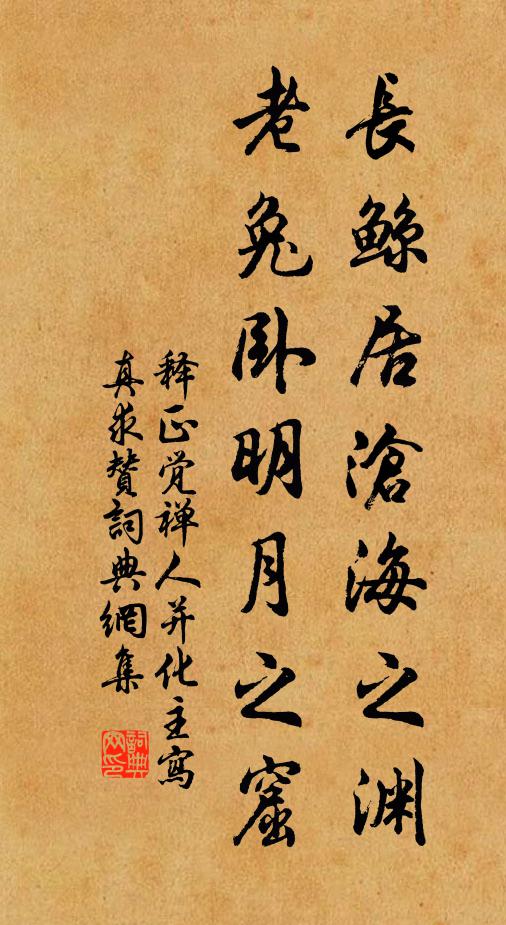 長鲸居滄海之渊
老兔卧明月之窟
释正觉禅人并化主寫
真求贊詞典網集
詞典網印